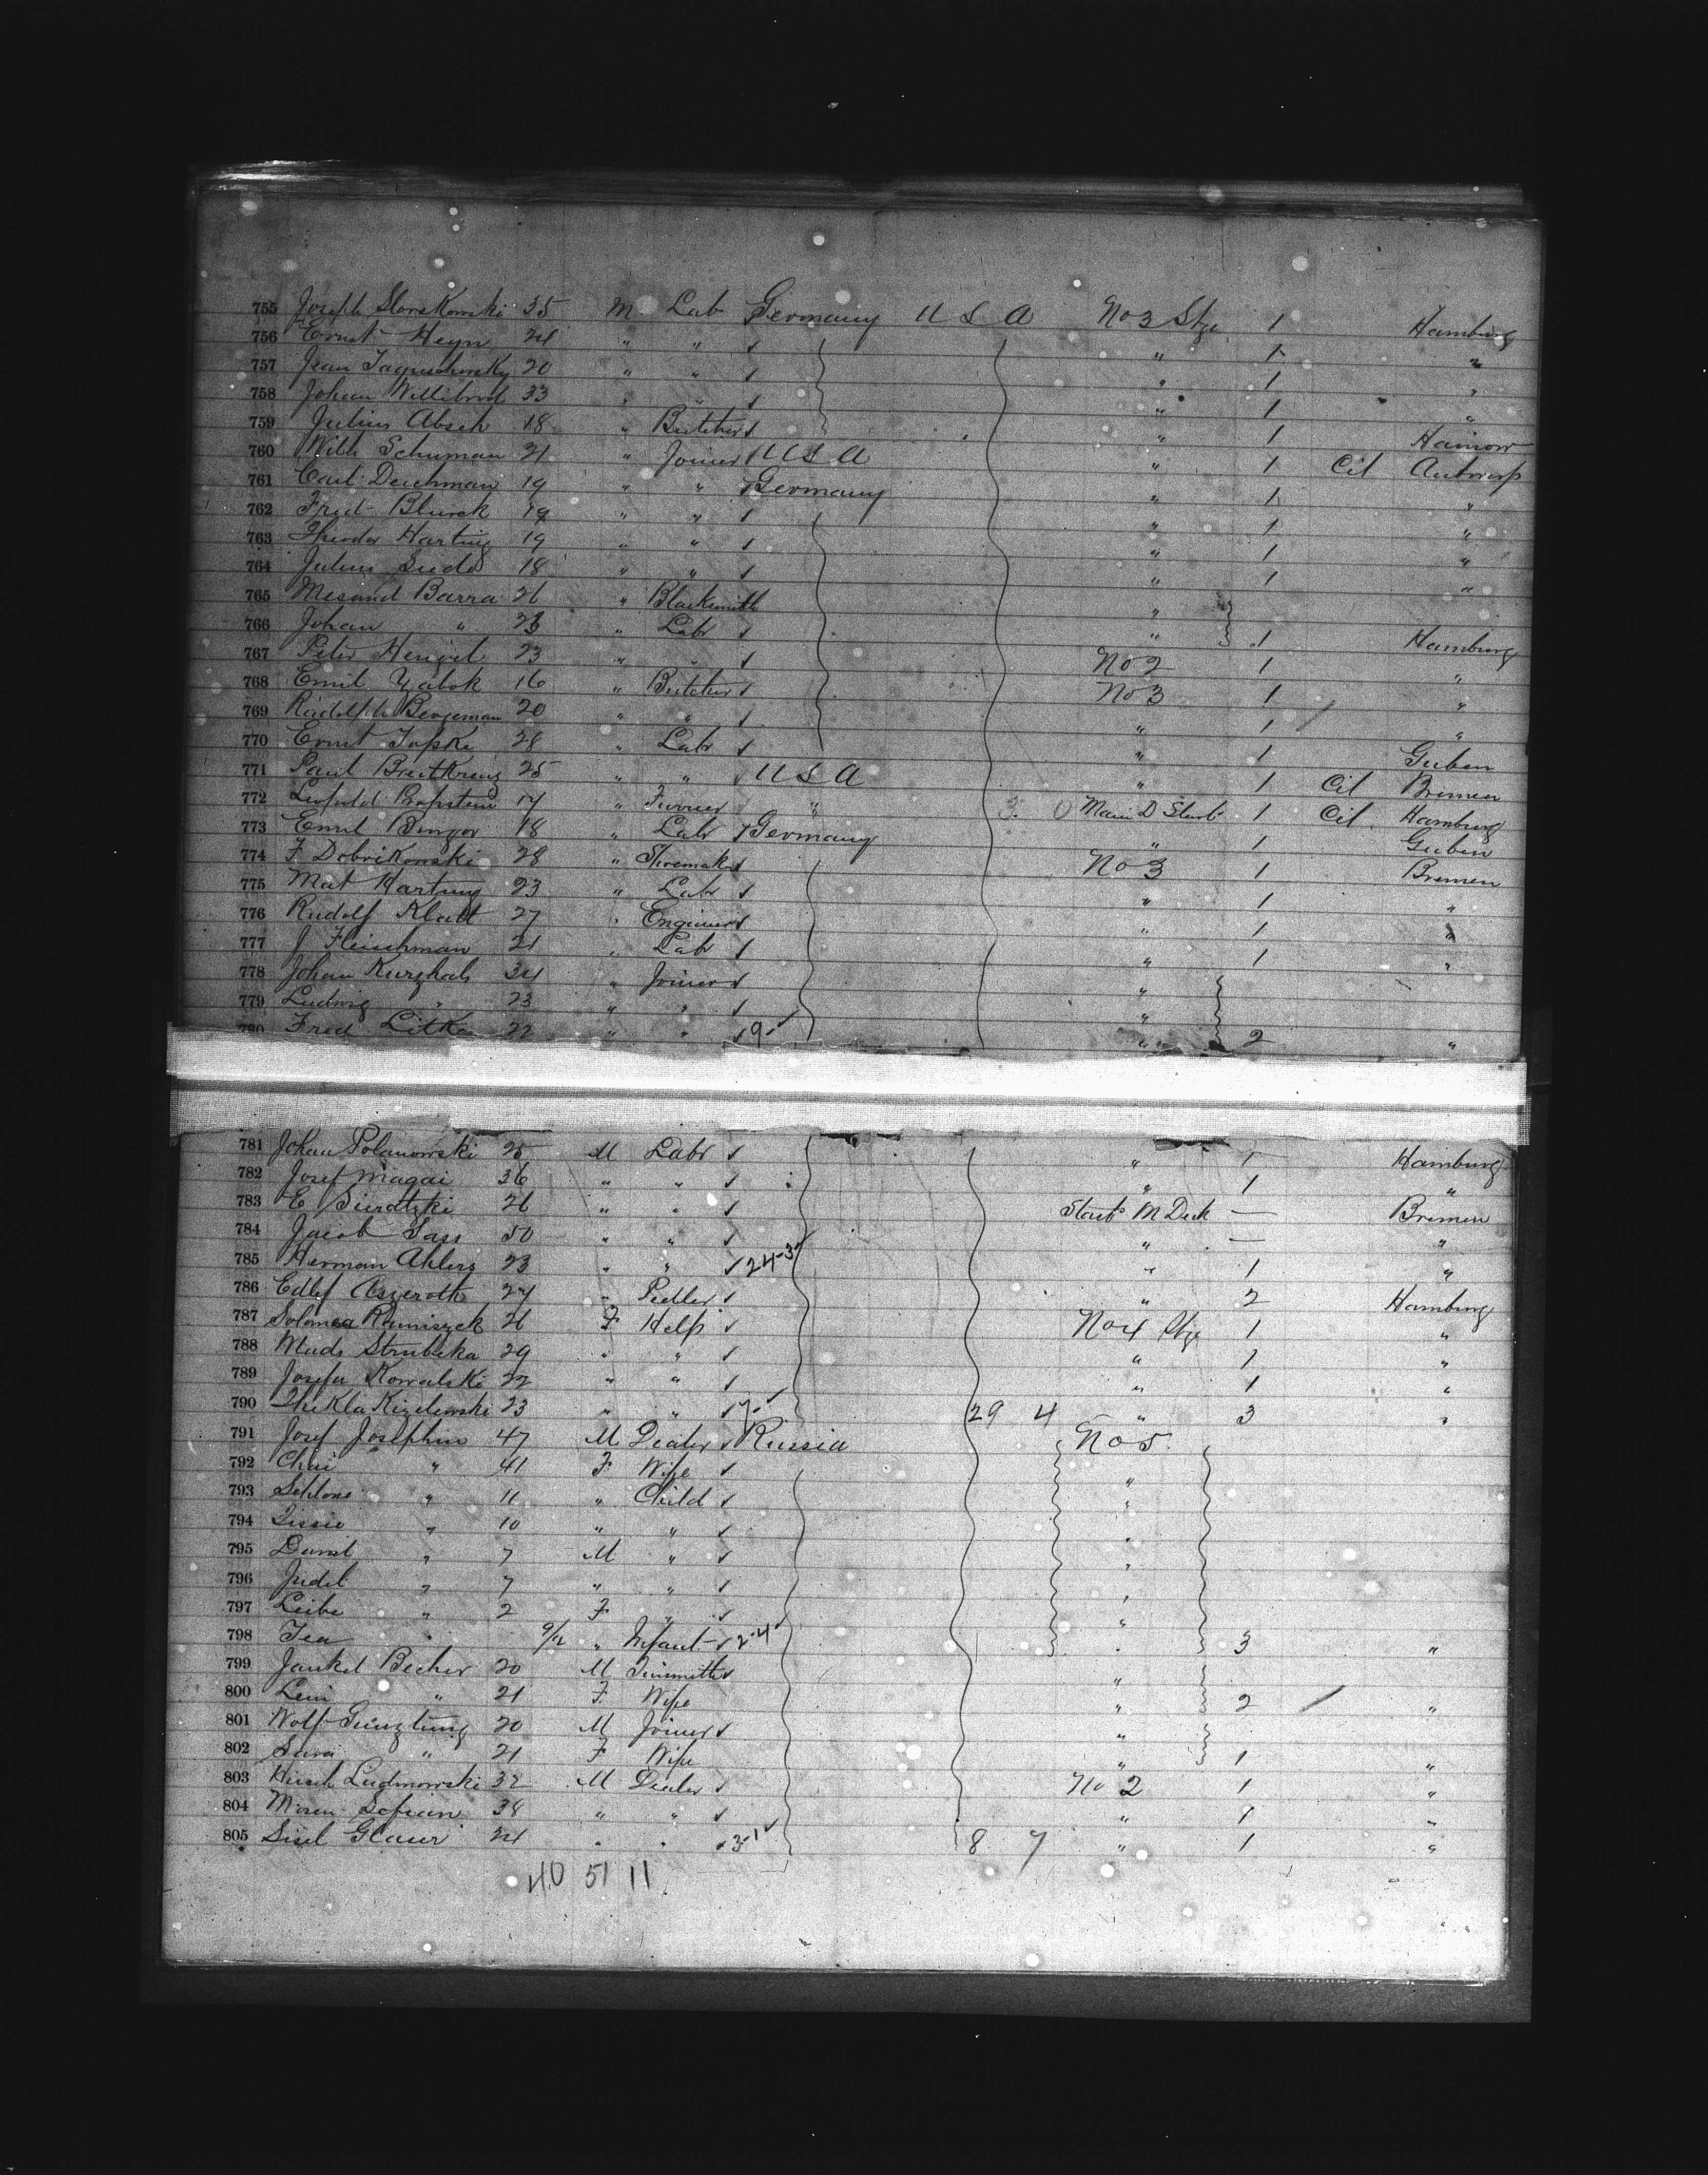 755 Joseph Slorskowski 35 M. Lab Germany U S A No 3 Stge 1 Hamburg
756 Ernst Heyn 24 " " ✓ " 1 "
757 Jean 20 " " ✓ " 1 "
758 Johan Willibrod 33 " " ✓ " 1 "
759 Julius Absch 18 " Butcher ✓ " 1
760 Wilh Schuman 21 " Joiner ✓ U S A " 1 Cit Antwerp
761 Carl Deichman 19 " " ✓ Germany " 1 "
762 Fred Blunck 19 " " ✓ " 1 "
763 Theodor Harting 19 " " ✓ " 1 "
764 Julius 18 " " ✓ " 1 "
765 Barra 26 " Blacksmith "
766 Johan " " Labr ✓ " 1 Hamburg
767 Peter Hengel 23 " " ✓ No 2 1 "
768 Emil Yabok 16 " Butcher ✓ No 3 1 "
769 Rudolph Bergeman 20 " " ✓ " 1 "
770 Ernst 28 " Labr ✓ " 1 Guben
771 Paul Breitkreuz 25 " " ✓ U S A " 1 Cit Bremen
772 Leopold 17 " Furrier " Main D Starb 1 Cit Hamburg
773 Emil 18 " Labr Germany " 1 Guben
774 F. Dobrikowski 28 " Shoemaker No 3 1 Bremen
775 Mat Hartung 23 " Labr ✓ " 1 "
776 Rudolf Klatt 27 " Engineer ✓ " 1 "
777 J Fleischman 21 " Labr ✓ " 1 "
778 Johan Kurzhals 34 " Joiner ✓ "
779 Ludwig " 23 " " ✓ "
780 Fred Litke 22 " " ✓ 9- " 2 "
781 Johan Polanowski 25 M Labr ✓ " 1 Hamburg
782 Josef Magai 36 " " ✓ " 1 "
783 E 26 " " ✓ Starb M Deck — Bremen
784 Jacob Sass 50 " " ✓ " — "
785 Herman Ahlers 23 " " ✓ 24-3 " 1 "
786 Aszeroth 27 " Pedler ✓ " 2 Hamburg
787 Solomea 26 F Help ✓ No 4 Stge 1 "
788 29 " " ✓ " 1 "
789 Josefa Kowalski 22 " " ✓ " 1 "
790 Thekla 23 " " ✓ 29 4 " 3 "
791 Josef Josephin 47 M Dealer ✓ Russia No 5
792 Chai " 41 F Wife ✓ "
793 " 11 " Child ✓ "
794 " 10 " " ✓ "
795 " 7 M " ✓ "
796 Judel " 7 " " ✓ "
797 Leibe " 2 F " ✓ "
798 9/12 " Infant ✓ 2-4 " 3 "
799 Jankel Becher 20 M Tinsmith ✓ "
800 " 21 F Wife " 2 "
801 Wolf 20 M Joiner ✓ "
802 " 21 F Wife " 1 "
803 Hirsch Ludmowski 32 M Dealer ✓ No 2 1 "
804 38 " " ✓ " 1 "
805 Sisel Glaser 24 " " ✓ 3-1 ✓ 8 7 " 1 "
40 51 11